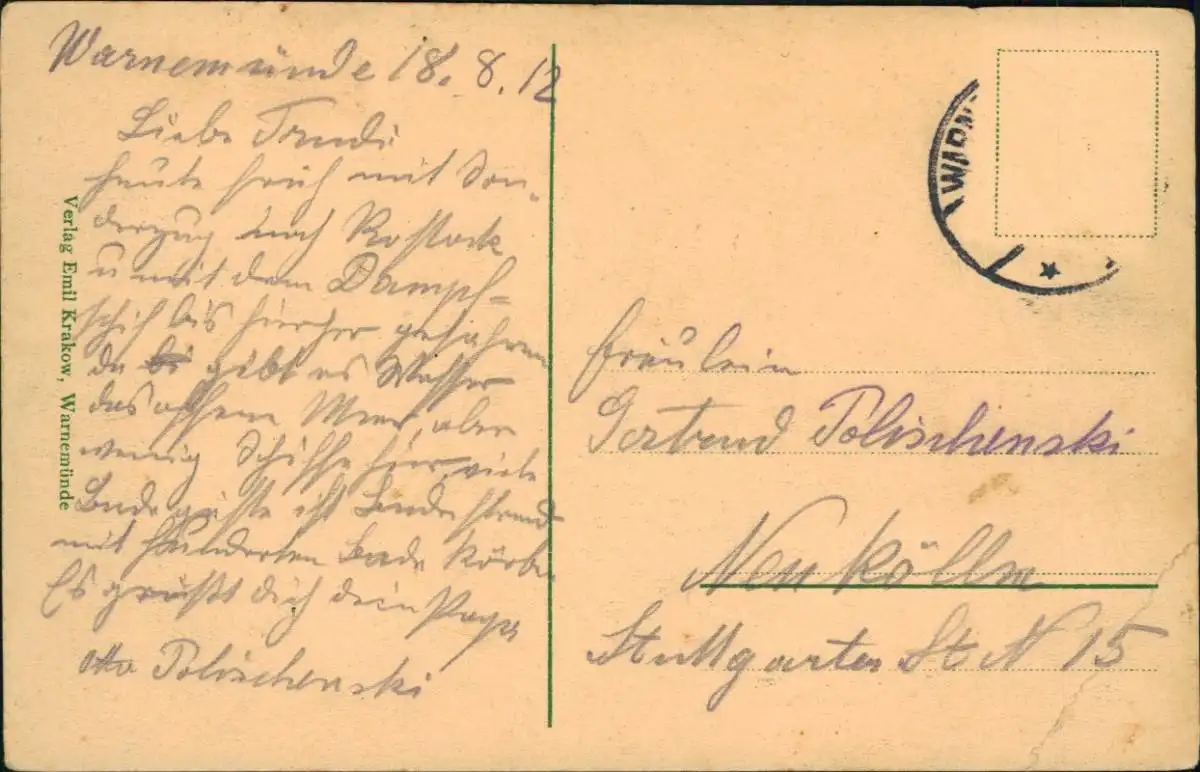 Warnemünde 18. 8. 12
Liebe Trudi
heute früh mit Son-
derzug nach Rostock
u mit dem Dampf-
schif bis hierher gefahren
da gibt es Wasser
das offene Meer, aber
wenig Schiffe hier, viele
Badegäste ist Badestrand
mit hunderten Bade Körbe
Es grüßt dich dein Papa
Otto Polischenski
Verlag Emil Krakow, Warnemünde
WARN
Fräulein
Gertrud Polischenski
Neukölln
Stuttgarter St N 15